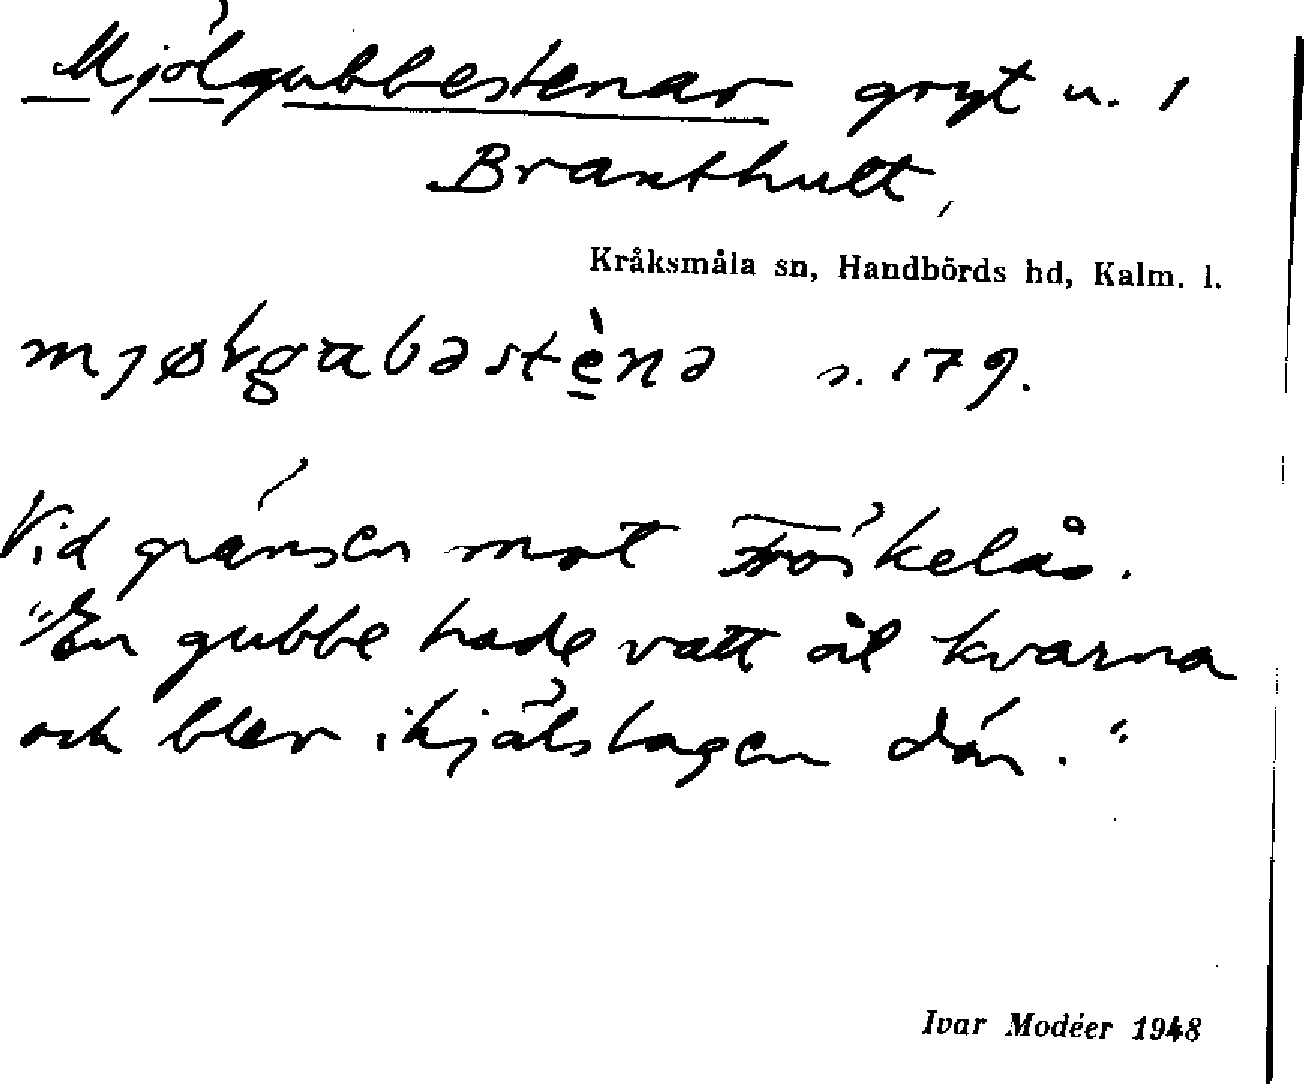 Mjölgubbestenar gryt u. 1
Branthult,
Kråksmåla sn, Handbörds hd, Kalm. l.
s. 179.
Vid gränsen mot Fröskelås.
"En gubbe hade vatt åt kvarna
och blev ihjälslagen där."
Ivar Modéer 1948